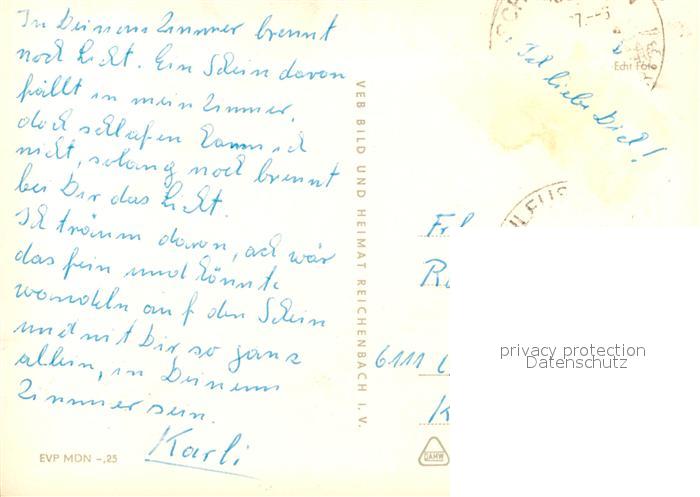 In Deinem Zimmer brennt
noch Licht. Ein Schein davon
fällt in mein Zimmer,
doch schlafen kann ich
nicht, solang noch brennt
bei Dir das Licht.
Ich träum davon, ach wär
das fein und könnte
wandeln auf den Schein
und mit Dir so ganz
allein, in Deinem
Zimmer sein.
Karli
EVP MDN –,25
VEB BILD UND HEIMAT REICHENBACH I. V.
Echt Foto
Ich liebe Dich!
6111
DAMW
privacy protection
Datenschutz